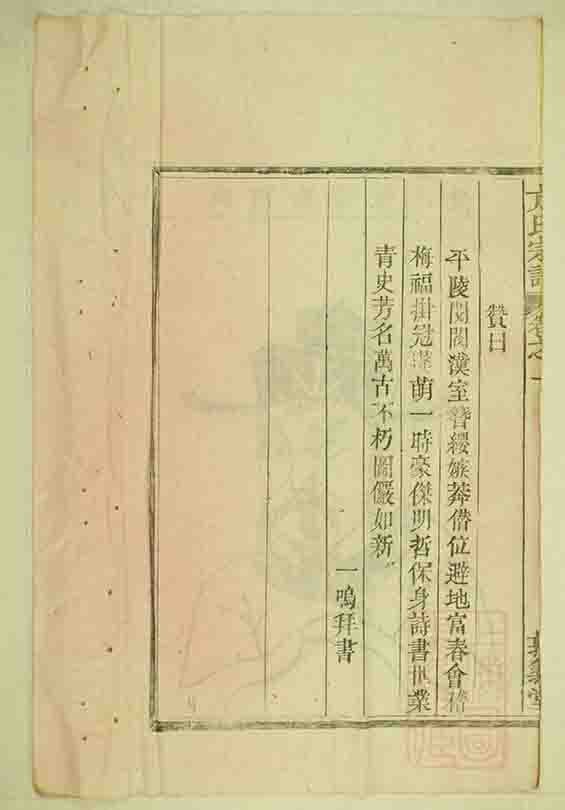 方氏宗譜 卷之一
贊曰
平陵閥閱漢室簪纓嫉莽僭位避地富春會稽
梅福掛冠 萌一時豪傑明哲保身詩書世業
青史芳名萬古不朽圖儼如新
一鳴拜書